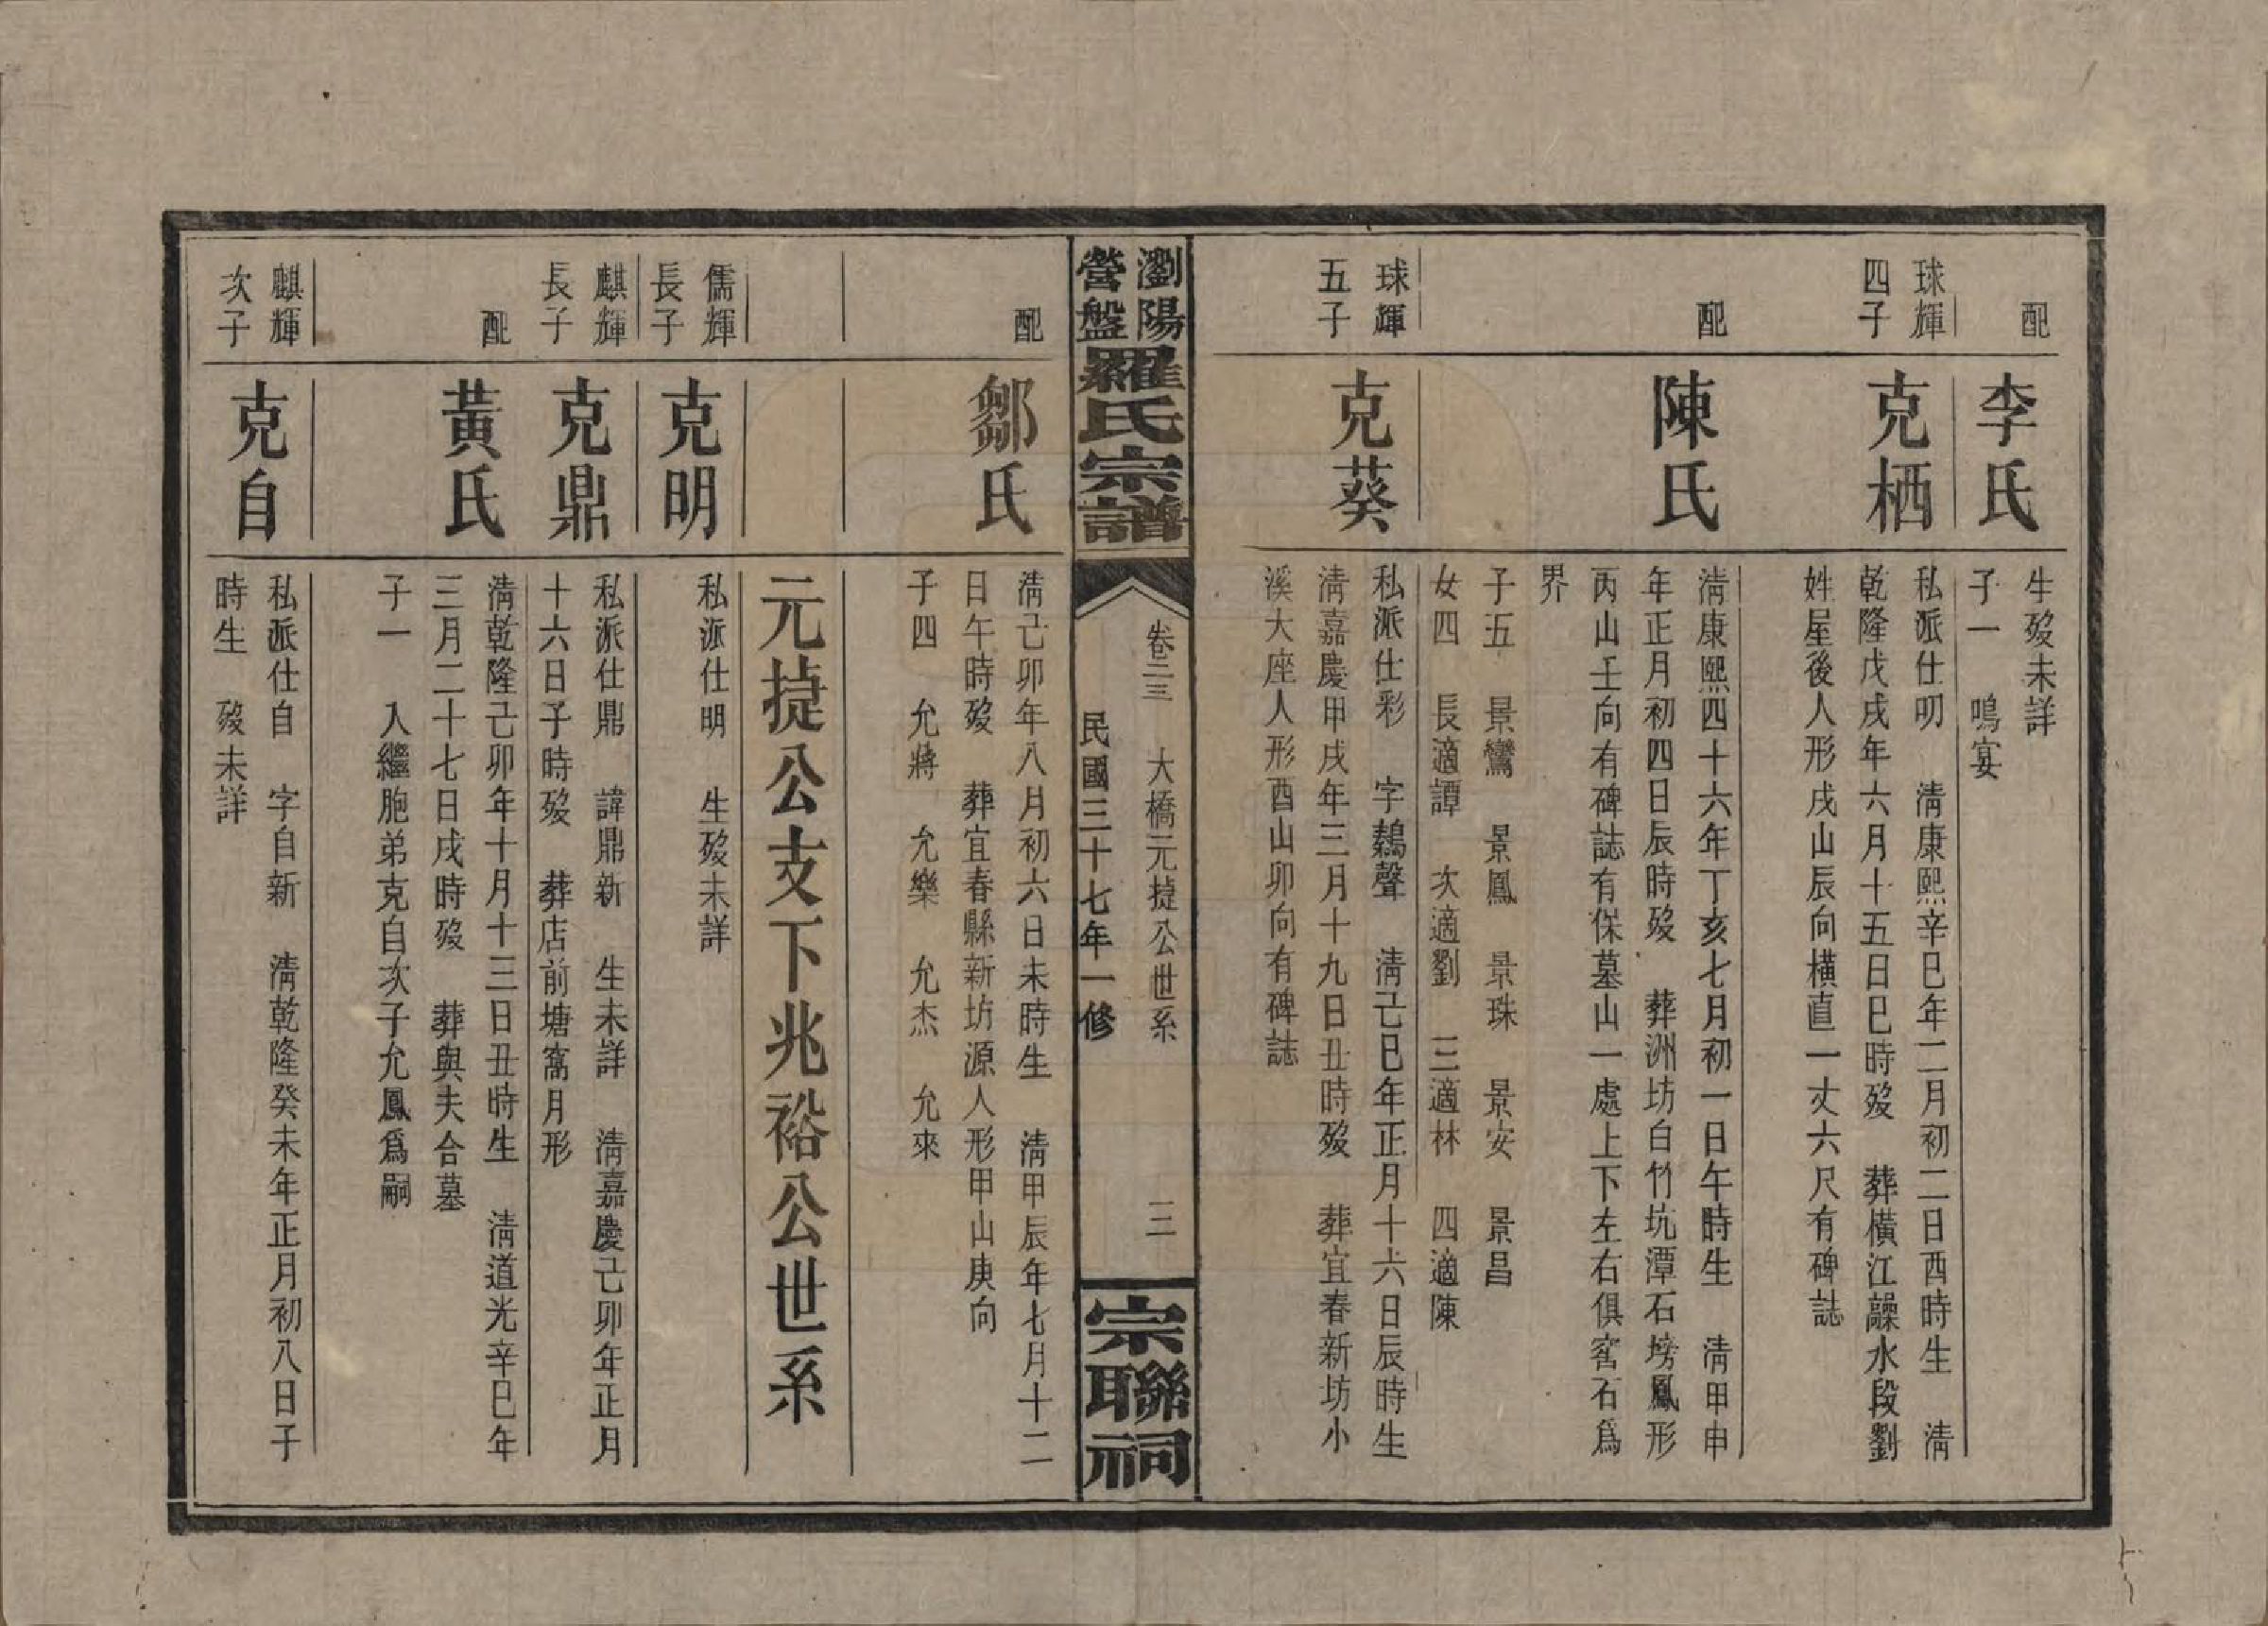 配
李氏
生歿未詳
子一　鳴宴
球輝
四子
克栖
私派仕明　清康熙辛巳年二月初二日酉時生　清
乾隆戊戌年六月十五日巳時歿　葬橫江水段劉
姓屋後人形戌山辰向橫直一丈六尺有碑誌
配
陳氏
清康熙四十六年丁亥七月初一日午時生　清甲申
年正月初四日辰時歿　葬洲坊白竹坑潭石塝鳳形
丙山壬向有碑誌有保墓山一處上下左右俱窖石爲
界
子五　景鸞　景鳳　景珠　景安　景昌
女四　長適譚　次適劉　三適林　四適陳
球輝
五子
克葵
私派仕彩　字鶈聲　清己巳年正月十六日辰時生
清嘉慶甲戌年三月十九日丑時歿　葬宜春新坊小
溪大座人形酉山卯向有碑誌
瀏陽
營盤
羅氏宗譜
卷二三　大橋元㨗公世系　三
民國三十七年一修
宗聯祠
配
鄒氏
清己卯年八月初六日未時生　清甲辰年七月十二
日午時歿　葬宜春縣新坊源人形甲山庚向
子四　允蔣　允樂　允杰　允來
元㨗公支下兆裕公世系
儒輝
長子
克明
私派仕明　生歿未詳
麒輝
長子
克鼎
私派仕鼎　諱鼎新　生未詳　清嘉慶己卯年正月
十六日子時歿　葬店前塘窩月形
配
黃氏
清乾隆己卯年十月十三日丑時生　清道光辛巳年
三月二十七日戌時歿　葬與夫合墓
子一　入繼胞弟克自次子允鳳爲嗣
麒輝
次子
克自
私派仕自　字自新　清乾隆癸未年正月初八日子
時生　歿未詳